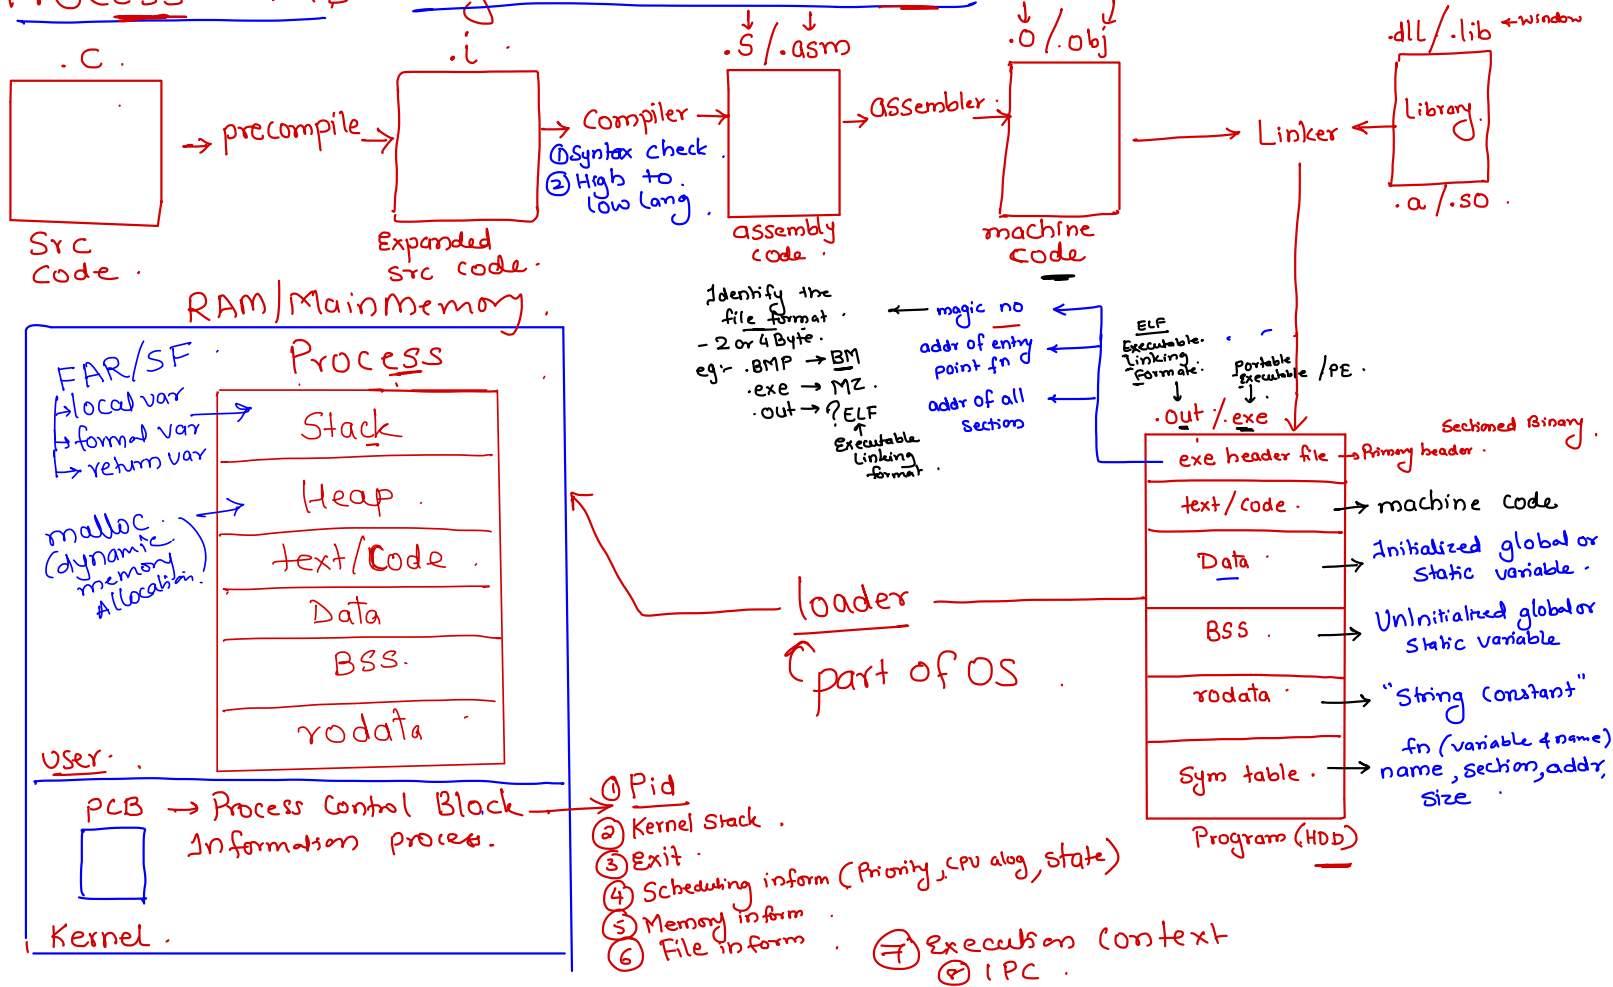 Process
.C .
.i .
.S / .asm
.O / .obj
.dll / .lib ← window
precompile
Compiler
① Syntax check .
② High to .
low lang .
assembler .
Linker
Library .
.a / .so .
Src
Code .
Expanded
src code .
assembly
code .
machine
code
RAM/MainMemory .
FAR/SF .
local var
formal var
return var
malloc .
(dynamic
memory
Allocation .)
Process
Stack
Heap .
text/Code .
Data
BSS .
rodata
user .
PCB → Process Control Block
Information process .
Kernel .
① Pid
② Kernel Stack .
③ Exit .
④ Scheduling inform (Priority, CPU alog, state)
⑤ Memory inform .
⑥ File inform .
⑦ Execution Context
⑧ IPC .
loader
part of OS .
Identify the
file format .
- 2 or 4 Byte .
eg:- .BMP → BM
.exe → MZ .
.out → ? ELF
Executable
Linking
format .
magic no
addr of entry
point fn
addr of all
section
ELF
Executable .
Linking
Formate .
Portable
Executable /PE .
.out / .exe
Sectioned Binary .
exe header file → Primary header .
text/code . → machine code
Data . → Initialized global or
Static variable .
BSS . → UnInitialized global or
Static variable
rodata → "String Constant"
Sym table . → fn (variable & name)
name, section, addr,
size .
Program (HDD)